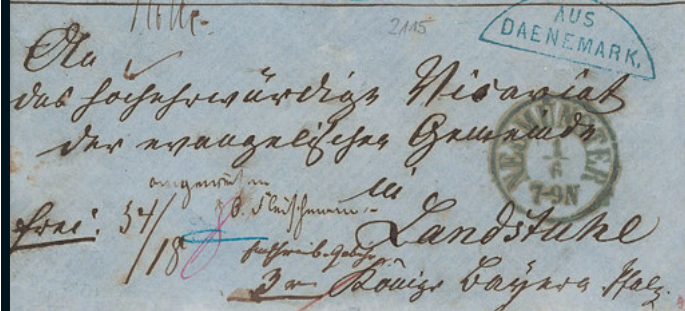 2115
AUS
DAENEMARK.
An
das hochehrwürdige Vicariat
der evangelischen Gemeinde
NEUMÜNSTER
1
6
7-9N
in
frei: 54/18
Landstuhl
3
Königr Bayern Pfalz.